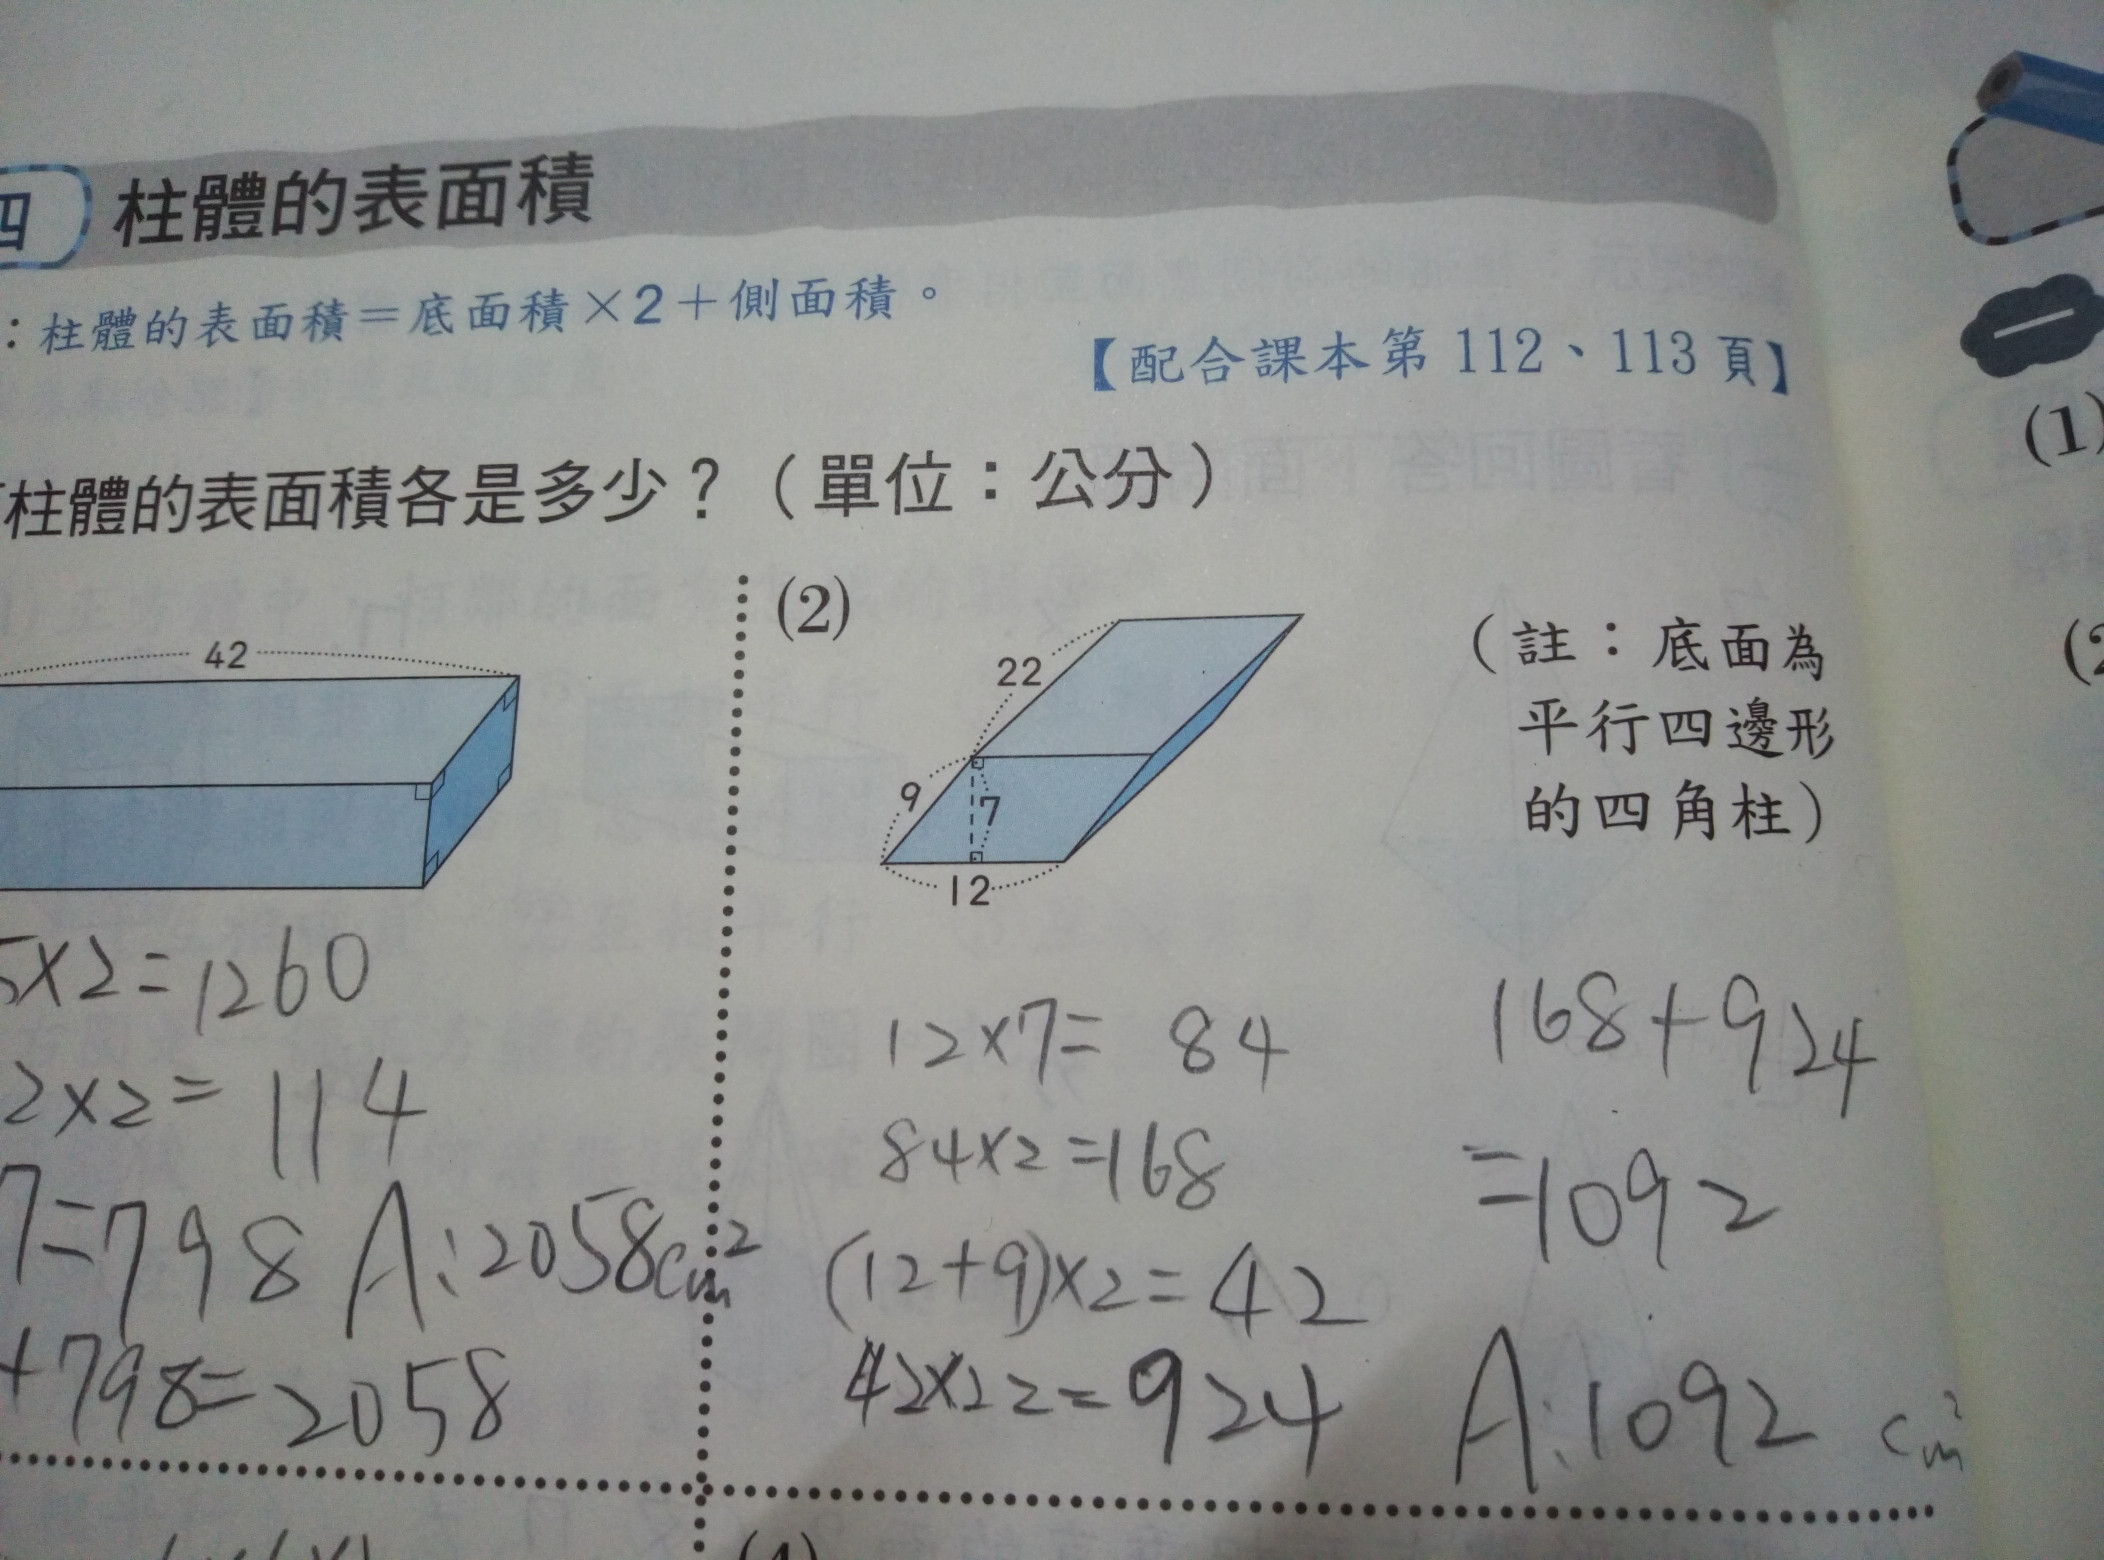 四 柱體的表面積
：柱體的表面積＝底面積×2＋側面積。
【配合課本第 112、113 頁】
柱體的表面積各是多少？（單位：公分）
42
5×2=1260
2×2=114
7=798 A:2058cm²
+798=2058
(2)
22
9
7
12
（註：底面為
平行四邊形
的四角柱）
12×7= 84
84×2=168
(12+9)×2=42
42×22=924
168+924
=1092
A:1092 cm²
(4)
一
(1)
(2